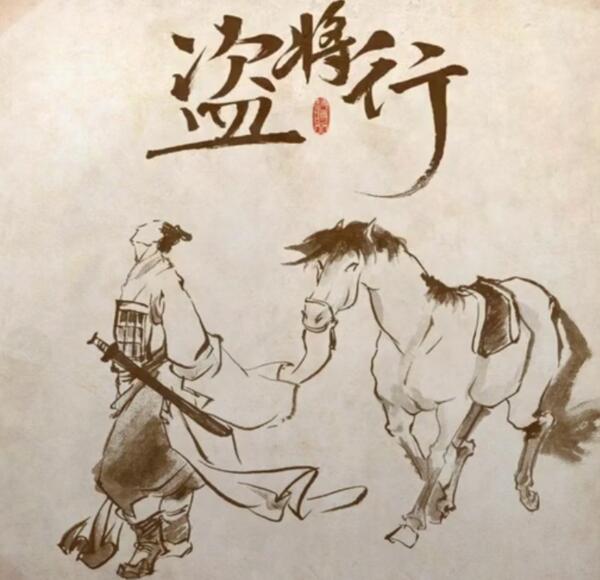 盗将行